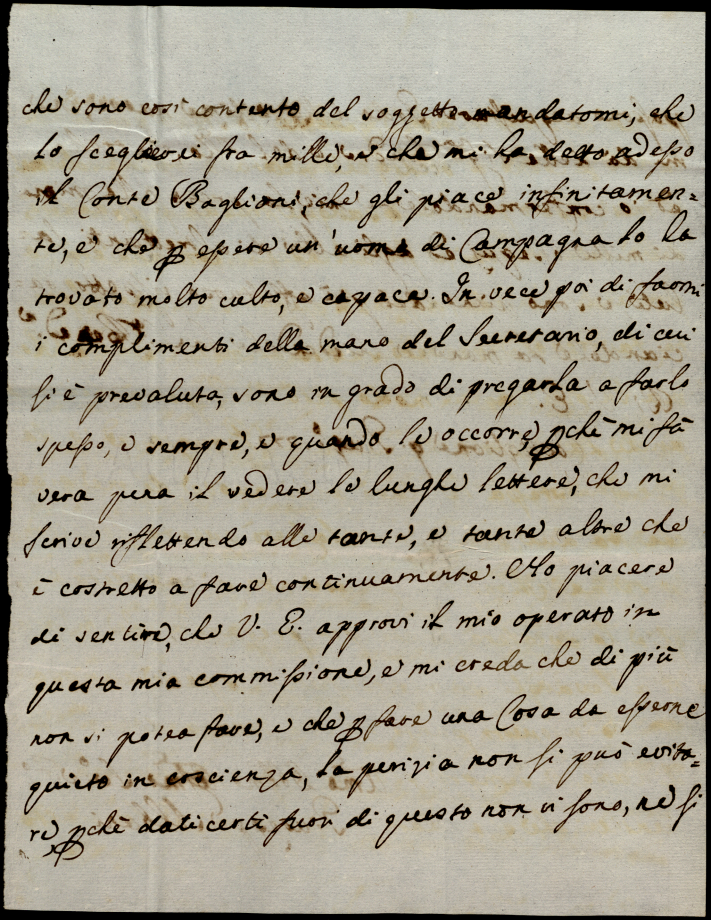 che sono così contento del soggetto mandatomi, che
lo sceglierei fra mille, e che mi ha detto adesso
il Conte Baglioni, che gli piace infinitamen=
te, e che p essere un'uomo di Campagna lo ha
trovato molto culto, e capace. In vece poi di farmi
i complimenti della mano del Secretario, di cui
si è prevaluta, sono in grado di pregarla a farlo
spesso, e sempre, e quando le occorre, pchè mi fà
vera pena il vedere le lunghe lettere, che mi
scrive riflettendo alle tante, e tante altre che
è costretto a fare continuamente. Ho piacere
di sentire, che V. E. approvi il mio operato in
questa mia commissione, e mi creda che di più
non si potea fare, e che p fare una Cosa da esserne
quieto in coscienza, la perizia non si può evita=
re pchè dati certi fuori di questo non vi sono, nè si